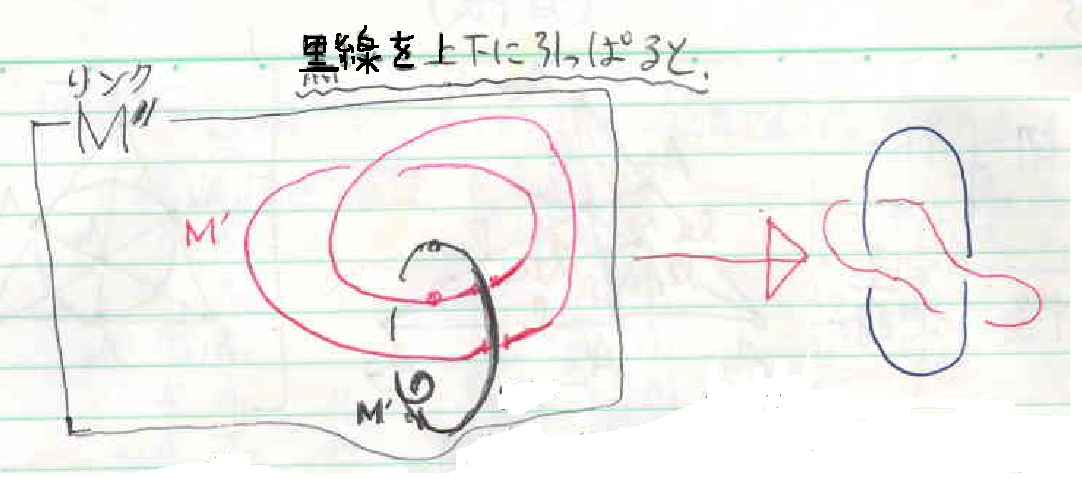 黒線を上下に引っぱると、
リンク
M"
M'
M'